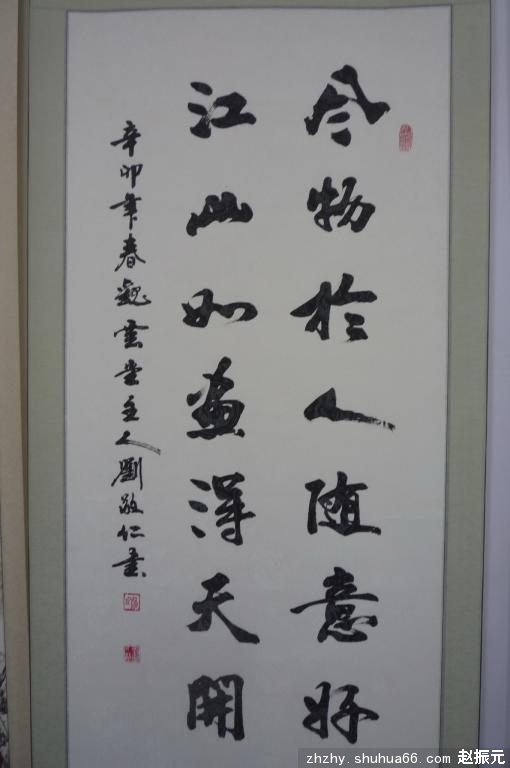 风物於人随意好
江山如畫得天開
辛卯年春觀雲堂主人劉敬仁書
zhzhy.shuhua66.com 赵振元